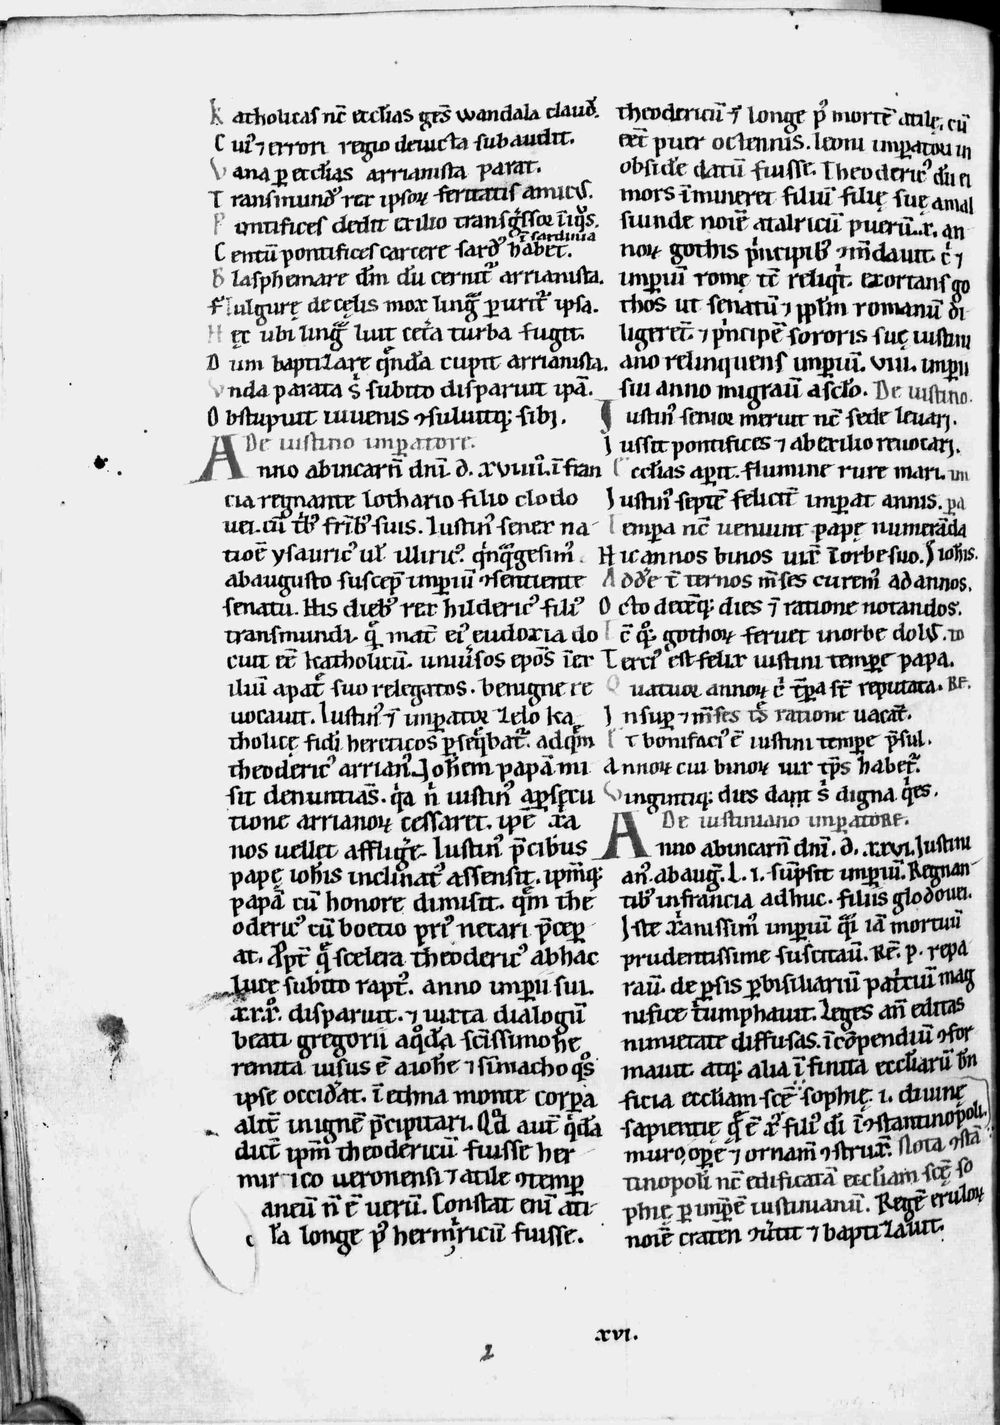 Katholicas nc̄ eccl̄ias gr̄es wandala claud᷒.
Cui᷒ ⁊ errori regio deuicta subaudit.
Vana ꝑ eccl̄ias arrianista parat.
Transmund᷒ rex ipsoꝝ feritatis amicus.
Pontifices dedit exilio transgressor iniq᷒s.
ī sardinia
Centū pontifices carcere sard᷒ habet.
Blasphemare dm̄ dū cernit᷒ arrianista.
Fulgurę de cęlis mox linguā ꝑurit᷒ ipsa.
Hęc ubi lingua luit cet̄a turba fugit.
Dum baptizare quendā cupit arrianista.
Vnda parata s; subito disparuit ipā.
Obstupuit iuuenis ⁊siluitq; sibj.
De iustino imperatore.
Anno ab incarn̄ dn̄i. d. xviiii. ī fran
cia regnante lothario filio clodo
uei. cū t̄b᷒ fr̄ib᷒ suis. Iustin᷒ senex na
tioē ysauric᷒ ul̄ illiric᷒. qinqgesim᷒
ab augusto suscep̄ imꝑiū ⁊sentiente
senatu. His dieb᷒ rex hilderic᷒ fili᷒
transmundi. quē mat̄ ei᷒ eudoxia do
cuit eē katholicū. uniu̓sos ep̄os īter
iliū a pat̄ suo relegatos. benigne re
uocauit. Iustin᷒ ī imperator zelo ka
tholicę fidi hereticos ꝑseq̄bat᷒. ad qm̄
theoderic᷒ arrian᷒. Joh̄em papā mi
sit denuntians. qa n̄ iustin᷒ a ꝑsecu
tione arrianoꝝ cessaret. ipē xp̄ia
nos uellet affligere. Iustin᷒ p̄cibus
papę ioh̄is inclinat᷒ assensit. ipm̄q;
papā cū honore dimisit. qm̄ the
oderic᷒ cū boetio pri᷒ necari p̄cep
at. Propt̄ quę scelera theoderic᷒ ab hac
luce subito rapt᷒. anno imꝑii sui.
xxx᷒. disparuit. ⁊ iuxta dialogū
beati gregorii a qdā sc̄issimo he
remita uisus ē a ioh̄e ⁊ simacho qs
ipse occid̄at. ī ethna monte corpora
alit̄ in ignē p̄cipitari. Qd̄ aut̄ qdā
dic̄t ipm̄ theodericū fuisse her
mirico ueronensi ⁊ atile ⁊temp
aneū n̄ ē uerū. Constat enī ati
lā longe p᷒ hermricū fuisse.
theodericū ⁊ longe p᷒ mortē atilę. cū
eēt puer octennis. leoni imperatori in
obsidē datū fuisse. Theoderic᷒ dū ei
mors īmineret filiū filię suę amal
siunde noīe atalricū puerū. x. an
noꝝ gothis p̄ncipib᷒ ⁊m̄dauit. et
imꝑiū romę eē reliqt. exortans go
thos ut senatū ⁊ ppl̄m romanū di
ligerēt. ⁊ p̄ncipē sororis suę iustini
ano relinquens imꝑiū. viii. imꝑii
sui anno migrauit a sclo. De iustino.
Iustin᷒ senior meruit nc̄ sede leuarj.
Iussit pontifices ⁊ ab exilio reuocarj.
Eccl̄ias aperit. flumine rure mari. im
Iustin᷒ septē felicit̄ imperat annis. pa
Tempa nc̄ ueniunt papę numerāda
Hic annos binos uixit ī orbe suo. Iohis.
Adde ī ternos m̄ses curem᷒ ad annos.
Octo decēq; dies ī ratione notandos.
Ic̄ q᷒. gothoꝝ feruet in orbe dolus. io
Terci᷒ est felix iustini tempore papa.
Quatuor annoꝝ c̄ t̄pa st̄ reputata. RF.
Insuꝑ ⁊ m̄ses t̄s ratione uacat̄.
Et bonifaci᷒ ē iustini tempore p̄sul.
Annoꝝ cui binoꝝ uix tp̄s habet᷒.
Vingintiq; dies dant s; digna qes.
De iustiniano imperatore.
Anno ab incarn̄ dn̄i. d. xxvi. Iustini
an᷒. ab aug᷒. L. i. sūpsit imꝑiū. Regnan
tib᷒ in francia adhuc. filiis glodouei.
Iste xp̄ianissim᷒ imꝑiū q̄si iā mortuū
prudentissime suscitauit. Re᷒. p. repa
rauit. de ꝑsis ꝑ bisiliariū pat̄iciū mag
nifice t̄umphauit. Leges an̄ editas
nimietate diffusas. ī cōpendiū ⁊for
mauit. atq; alia ī finita eccl̄iarū bn̄
ficia eccl̄iam scę sophię. i. diuinę
sapientię quę ē xp̄c fili᷒ di ī ⁊stantinopoli.
muro, oꝑe ⁊ ornam̄ ⁊struxit. Nota ⁊stā
tinopoli nc̄ edificatā eccl̄iam scę so
phię ꝑ impatorē iustinianū. Regē eruloꝝ
noīe craten ⁊u̓tit ⁊ baptizauit.
xvi.
2